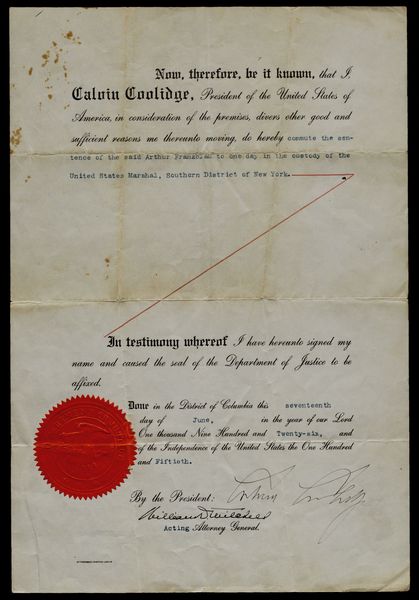 Now, therefore, be it known, that I,
Calvin Coolidge, President of the United States of
America, in consideration of the premises, divers other good and
sufficient reasons me thereunto moving, do hereby commute the sen-
tence of the said Arthur Franzblau to one day in the custody of the
United States Marshal, Southern District of New York.
In testimony whereof I have hereunto signed my
name and caused the seal of the Department of Justice to be
affixed.
Done in the District of Columbia this seventeenth
day of June, in the year of our Lord
One thousand Nine Hundred and Twenty-six, and
of the Independence of the United States the One Hundred
and Fiftieth.
By the President: Calvin Coolidge
William D Mitchell
Acting Attorney General.